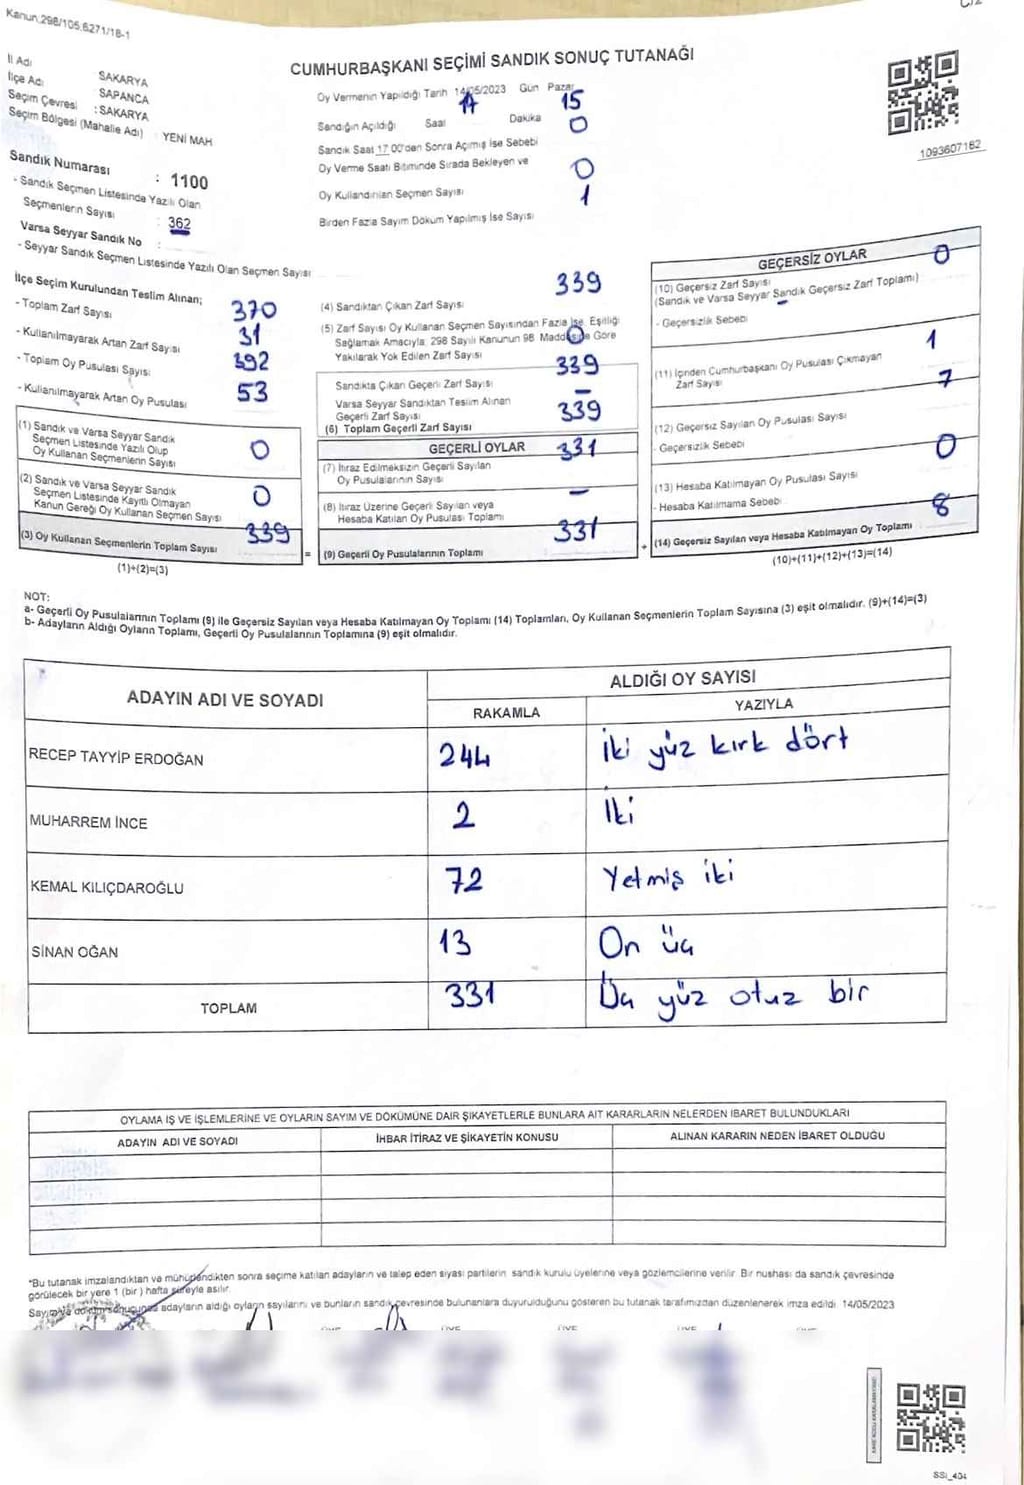 Kanun:298/105,6271/18-1
CUMHURBAŞKANI SEÇİMİ SANDIK SONUÇ TUTANAĞI
İl Adı SAKARYA
İlçe Adı SAPANCA
Seçim Çevresi : SAKARYA
Seçim Bölgesi (Mahalle Adı) : YENİ MAH
Sandık Numarası : 1100
- Sandık Seçmen Listesinde Yazılı Olan
Seçmenlerin Sayısı : 362
Varsa Seyyar Sandık No :
- Seyyar Sandık Seçmen Listesinde Yazılı Olan Seçmen Sayısı
Oy Vermenin Yapıldığı Tarih 14/05/2023 Gün Pazar
Sandığın Açıldığı Saat 17 Dakika 15
Sandık Saat 17:00'den Sonra Açmış İse Sebebi 0
Oy Verme Saati Bitiminde Sırada Bekleyen ve
Oy Kullandırılan Seçmen Sayısı 0
Birden Fazla Sayım Döküm Yapılmış İse Sayısı 1
1093607182
İlçe Seçim Kurulundan Teslim Alınan;
- Toplam Zarf Sayısı 370
- Kullanılmayarak Artan Zarf Sayısı 31
- Toplam Oy Pusulası Sayısı 392
- Kullanılmayarak Artan Oy Pusulası 53
(1) Sandık ve Varsa Seyyar Sandık
Seçmen Listesinde Yazılı Olup
Oy Kullanan Seçmenlerin Sayısı 0
(2) Sandık ve Varsa Seyyar Sandık
Seçmen Listesinde Kayıtlı Olmayan
Kanun Gereği Oy Kullanan Seçmen Sayısı 0
(3) Oy Kullanan Seçmenlerin Toplam Sayısı 339
(1)+(2)=(3)
=
(4) Sandıktan Çıkan Zarf Sayısı 339
(5) Zarf Sayısı Oy Kullanan Seçmen Sayısından Fazla İse, Eşitliği
Sağlamak Amacıyla; 298 Sayılı Kanunun 98. Maddesine Göre
Yakılarak Yok Edilen Zarf Sayısı 0
Sandıkta Çıkan Geçerli Zarf Sayısı 339
Varsa Seyyar Sandıktan Teslim Alınan
Geçerli Zarf Sayısı –
(6) Toplam Geçerli Zarf Sayısı 339
GEÇERLİ OYLAR
(7) İtiraz Edilmeksizin Geçerli Sayılan
Oy Pusulalarının Sayısı 331
(8) İtiraz Üzerine Geçerli Sayılan veya
Hesaba Katılan Oy Pusulası Toplamı –
(9) Geçerli Oy Pusulalarının Toplamı 331
+
GEÇERSİZ OYLAR
(10) Geçersiz Zarf Sayısı 0
(Sandık ve Varsa Seyyar Sandık Geçersiz Zarf Toplamı)
- Geçersizlik Sebebi –
(11) İçinden Cumhurbaşkanı Oy Pusulası Çıkmayan
Zarf Sayısı 1
(12) Geçersiz Sayılan Oy Pusulası Sayısı 7
- Geçersizlik Sebebi
(13) Hesaba Katılmayan Oy Pusulası Sayısı 0
- Hesaba Katılmama Sebebi
(14) Geçersiz Sayılan veya Hesaba Katılmayan Oy Toplamı 8
(10)+(11)+(12)+(13)=(14)
NOT:
a- Geçerli Oy Pusulalarının Toplamı (9) ile Geçersiz Sayılan veya Hesaba Katılmayan Oy Toplamı (14) Toplamları, Oy Kullanan Seçmenlerin Toplam Sayısına (3) eşit olmalıdır. (9)+(14)=(3)
b- Adayların Aldığı Oyların Toplamı, Geçerli Oy Pusulalarının Toplamına (9) eşit olmalıdır.
ADAYIN ADI VE SOYADI ALDIĞI OY SAYISI
RAKAMLA YAZIYLA
RECEP TAYYİP ERDOĞAN 244 İki yüz kırk dört
MUHARREM İNCE 2 İki
KEMAL KILIÇDAROĞLU 72 Yetmiş iki
SİNAN OĞAN 13 On üç
TOPLAM 331 Üç yüz otuz bir
OYLAMA İŞ VE İŞLEMLERİNE VE OYLARIN SAYIM VE DÖKÜMÜNE DAİR ŞİKAYETLERLE BUNLARA AİT KARARLARIN NELERDEN İBARET BULUNDUKLARI
ADAYIN ADI VE SOYADI İHBAR İTİRAZ VE ŞİKAYETİN KONUSU ALINAN KARARIN NEDEN İBARET OLDUĞU
*Bu tutanak imzalandıktan ve mühürlendikten sonra seçime katılan adayların ve talep eden siyasi partilerin sandık kurulu üyelerine veya gözlemcilerine verilir. Bir nushası da sandık çevresinde
görülecek bir yere 1 (bir) hafta süreyle asılır.
Sayım ve döküm sonucunda adayların aldığı oyların sayılarını ve bunların sandık çevresinde bulunanlara duyurulduğunu gösteren bu tutanak tarafımızdan düzenlenerek imza edildi. 14/05/2023
SSİ_404